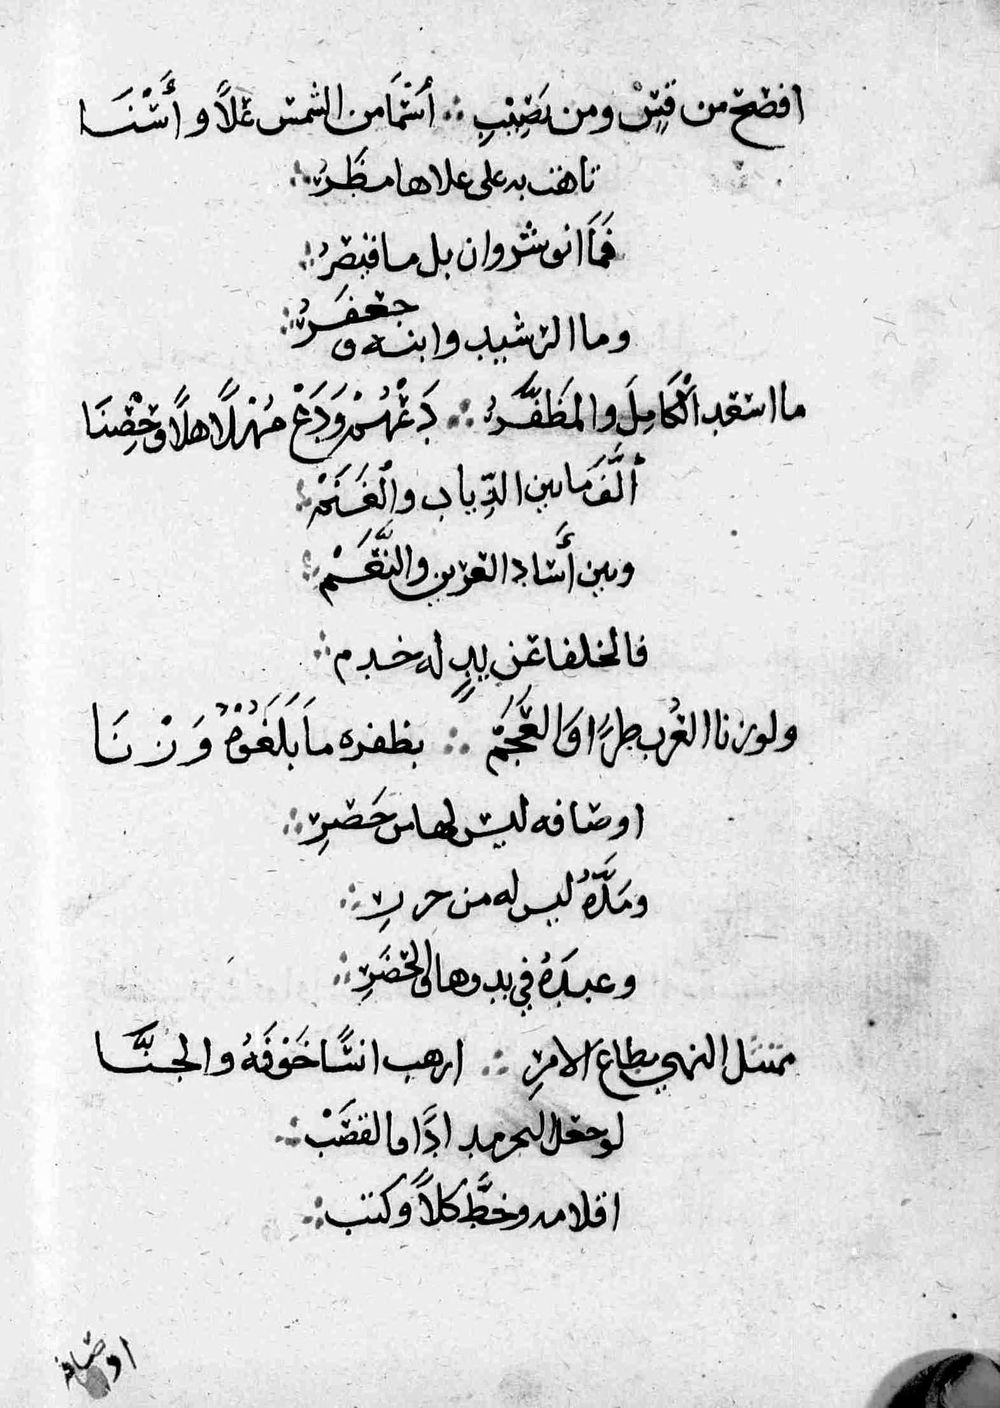 افصح من قس ومن نصيب ∴ أسما من الشمس علاً وأسنا
تاهت به على علاها مضر ∴
فما انوشروان بل ما قيصر ∴
وما الرشيد وابنه و جعفر ∴
ما اسعد الكامل والمظفر ∴ دعهم ودع مهلا هلا وحصنا
ألف ما بين الذياب والغنم ∴
وبين أساد العرين والنعم ∴
فالخلفا عن يد له خدم ∴
ولو زنا العرب طرا والعجم ∴ بظفره ما بلغوه وزنا
اوصافه ليس لها من حصر ∴
ومده ليس له من جزر ∴
وعبده في بدوها والحضر ∴
ممتثل النهي مطاع الامر ∴ ارهب انسا خوفه والجنا
لو جعل البحر مدادا والقصب ∴
اقلامه وخط كلا وكتب ∴
اوصافه